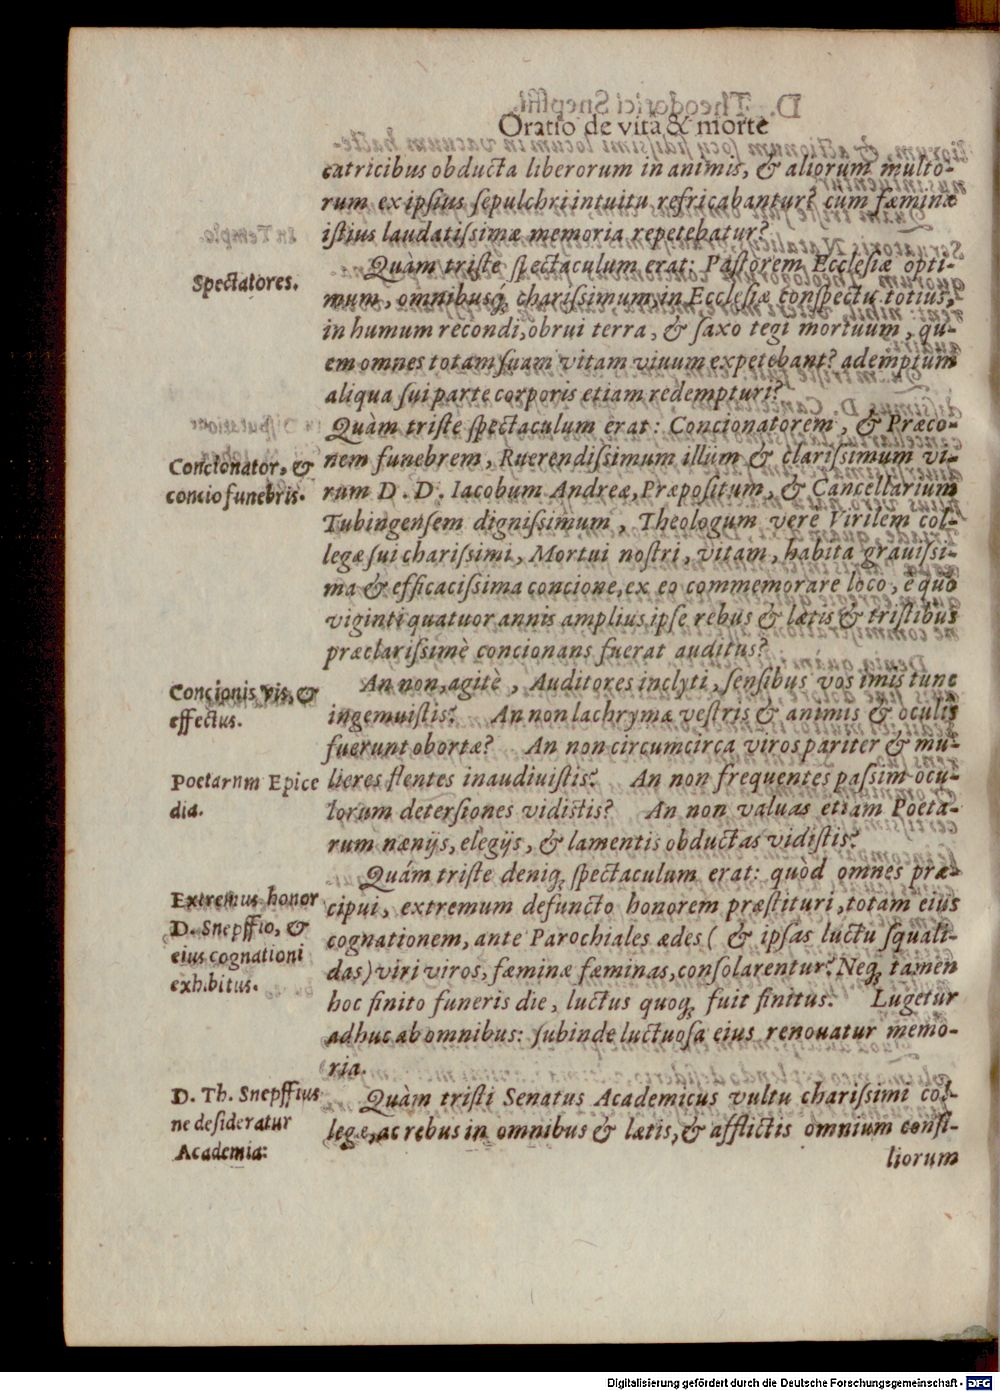 Oratio de vita & morte
catricibus obducta liberorum in animis, & aliorum multo-
rum ex ipsius sepulchri intuitu refricabantur? cum fæminæ
istius laudatissimæ memoria repetebatur?
Spectatores.
Quàm triste spectaculum erat: Pastorem Ecclesiæ opti-
mum, omnibusq́; charissimum, in Ecclesiæ conspectu totius,
in humum recondi, obrui terra, & saxo tegi mortuum, qu-
em omnes totam suam vitam viuum expetebant? ademptum
aliqua sui parte corporis etiam redempturi?
Concionator, &
concio funebris.
Quàm triste spectaculum erat: Concionatorem, & Præco-
nem funebrem, Ruerendissimum illum & clarissimum vi-
rum D. D. Iacobum Andreæ, Præpositum, & Cancellarium
Tubingensem dignissimum, Theologum vere Virilem col-
legæ sui charissimi, Mortui nostri, vitam, habita grauissi-
ma & efficacissima concione, ex eo commemorare loco, è quo
viginti quatuor annis amplius, ipse rebus & lætis & tristibus
præclarissimè concionans fuerat auditus?
Concionis vis, &
effectus.
An non, agitè, Auditores inclyti, sensibus vos imis tunc
ingemuistis? An non lachrymæ vestris & animis & oculis
fuerunt obortæ? An non circumcirca viros pariter & mu-
Poetarnm Epice
dia.
lieres flentes inaudiuistis? An non frequentes passim ocu-
lorum detersiones vidistis? An non valuas etiam Poeta-
rum nænijs, elegijs, & lamentis obductas vidistis?
Extremus honor
D. Snepffio, &
eius cognationi
exhibitus.
Quám triste deniq; spectaculum erat: quòd omnes præ-
cipui, extremum defuncto honorem præstituri, totam eius
cognationem, ante Parochiales ædes ( & ipsas luctu squali-
das) viri viros, fæminæ fæminas, consolarentur? Neq; tamen
hoc finito funeris die, luctus quoq; fuit finitus. Lugetur
adhuc ab omnibus: subinde luctuosa eius renouatur memo-
ria.
D. Th. Snepffius
ne desideratur
Academia:
Quàm tristi Senatus Academicus vultu charissimi col-
legæ, ac rebus in omnibus & lætis, & afflictis omnium consi-
liorum
Digitalisierung gefördert durch die Deutsche Forschungsgemeinschaft - DFG